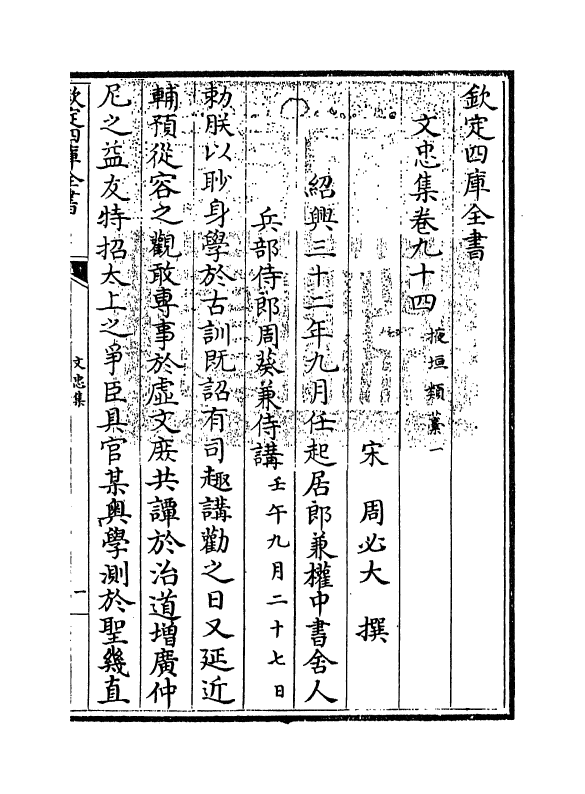 欽定四庫全書
文忠集卷九十四 掖垣類藁一
宋 周必大 撰
紹興三十二年九月任起居郎兼權中書舍人
兵部侍郎周葵兼侍講 壬午九月二十七日
勅朕以眇身學於古訓既詔有司趣講勸之日又延近
輔預從容之觀敢專事於虛文庶共譚於治道增廣仲
尼之益友特招太上之爭臣具官某奥學測於聖幾直
欽定四庫全書
文忠集
一